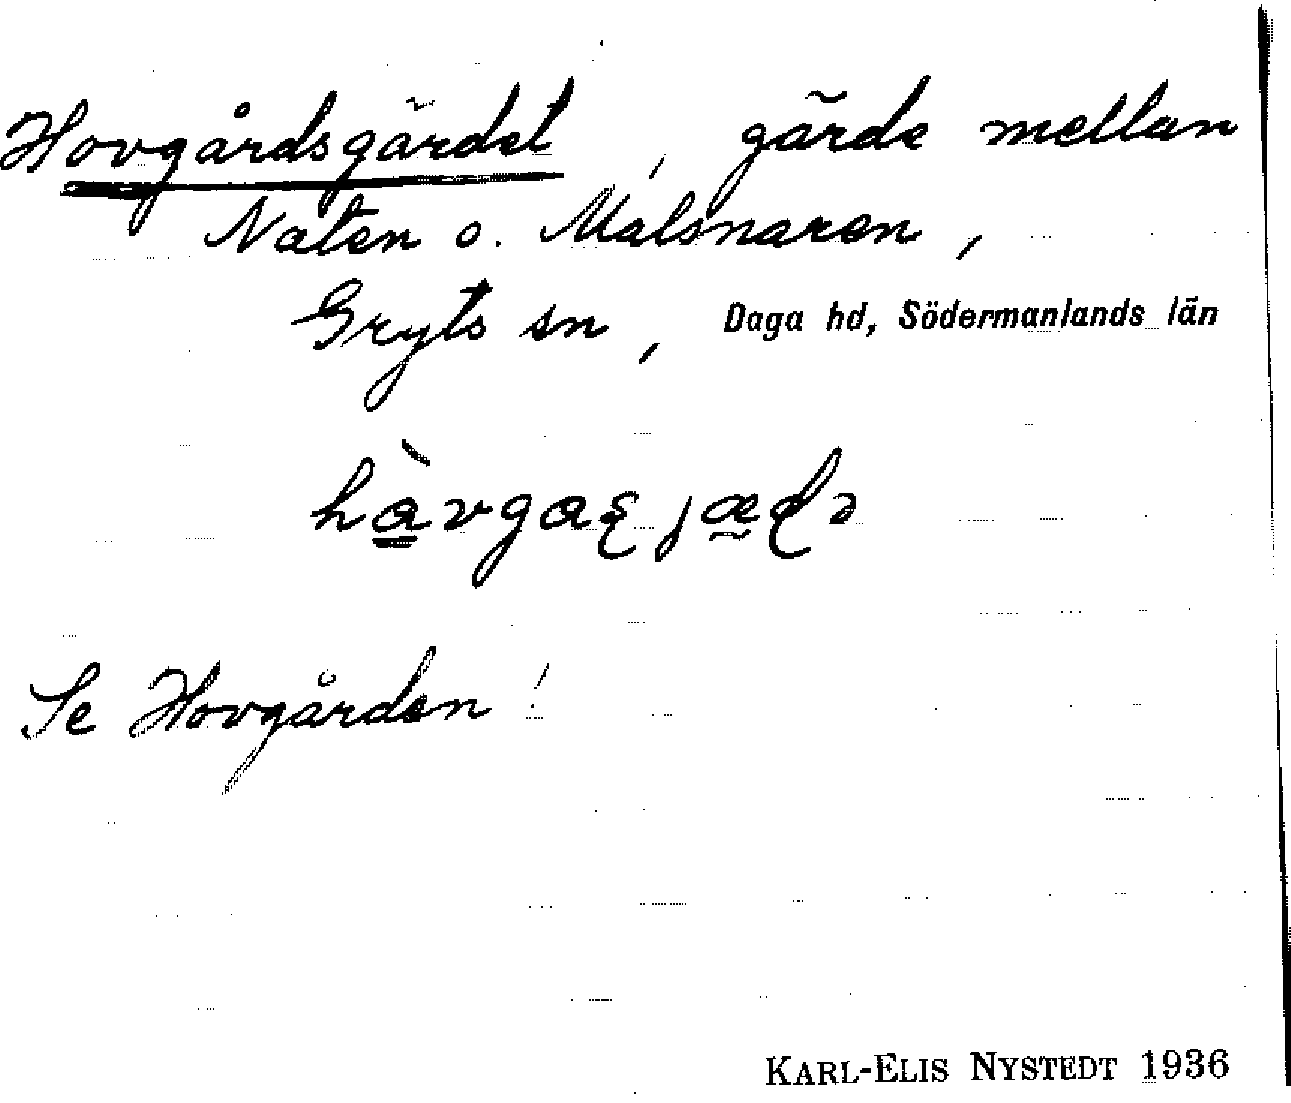 Hovgårdsgärdet, gärde mellan
Naten o. Malsnaren,
Gryts sn, Daga hd, Södermanlands län
Se Hovgården!
KARL-ELIS NYSTEDT 1936